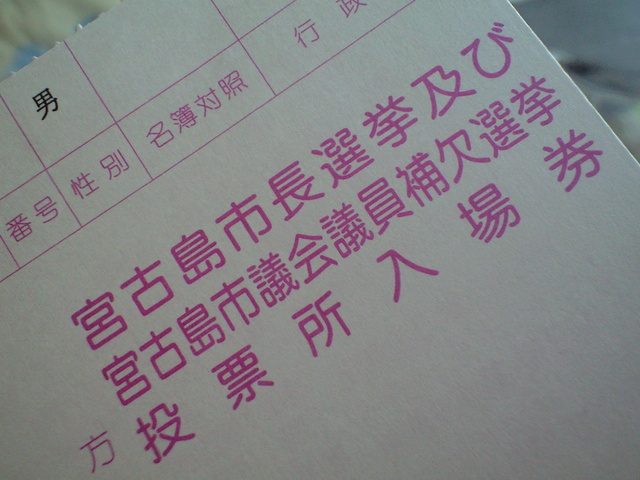 男
番号 性別 名簿対照 行政
宮古島市長選挙及び
宮古島市議会議員補欠選挙
投票所入場券
方